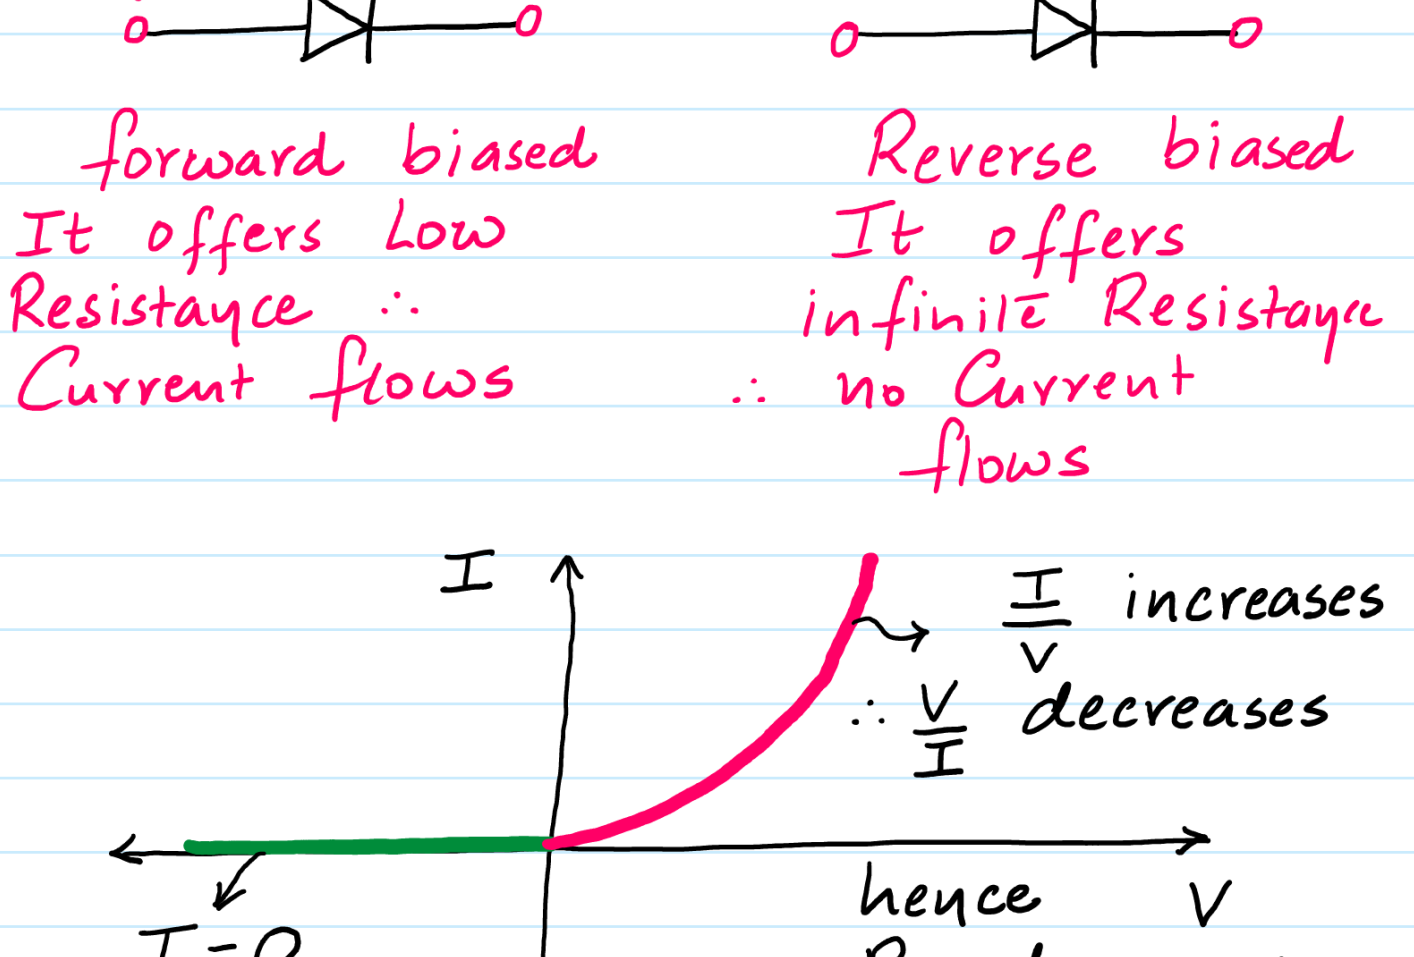 forward biased
It offers Low
Resistance ∴
Current flows
Reverse biased
It offers
infinite Resistance
∴ no Current
flows
I
I/V increases
∴ V/I decreases
V
hence
I = 0